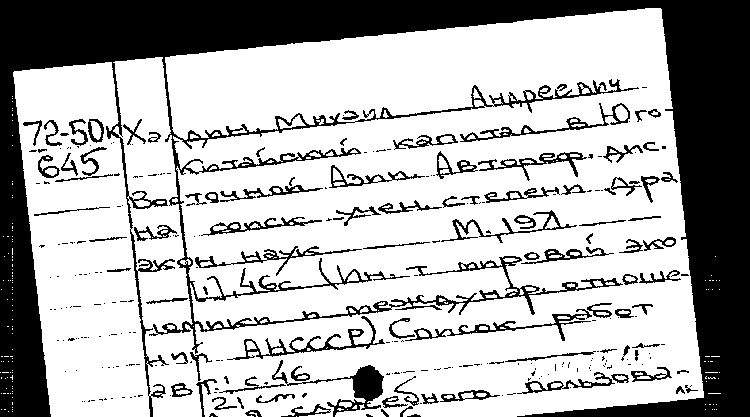 72-50к Халдин, Михаил Андреевич
645 Китайский капитал в Юго-
Восточной Азии. Автореф. дис.
на соиск учен. степени д-ра
экон. наук М., 1971.
[1], 46с (Ин-т мировой эко-
номики и междунар. отноше-
ний АНСССР). Список работ
авт.: с. 46
21 ст.
служебного пользова-